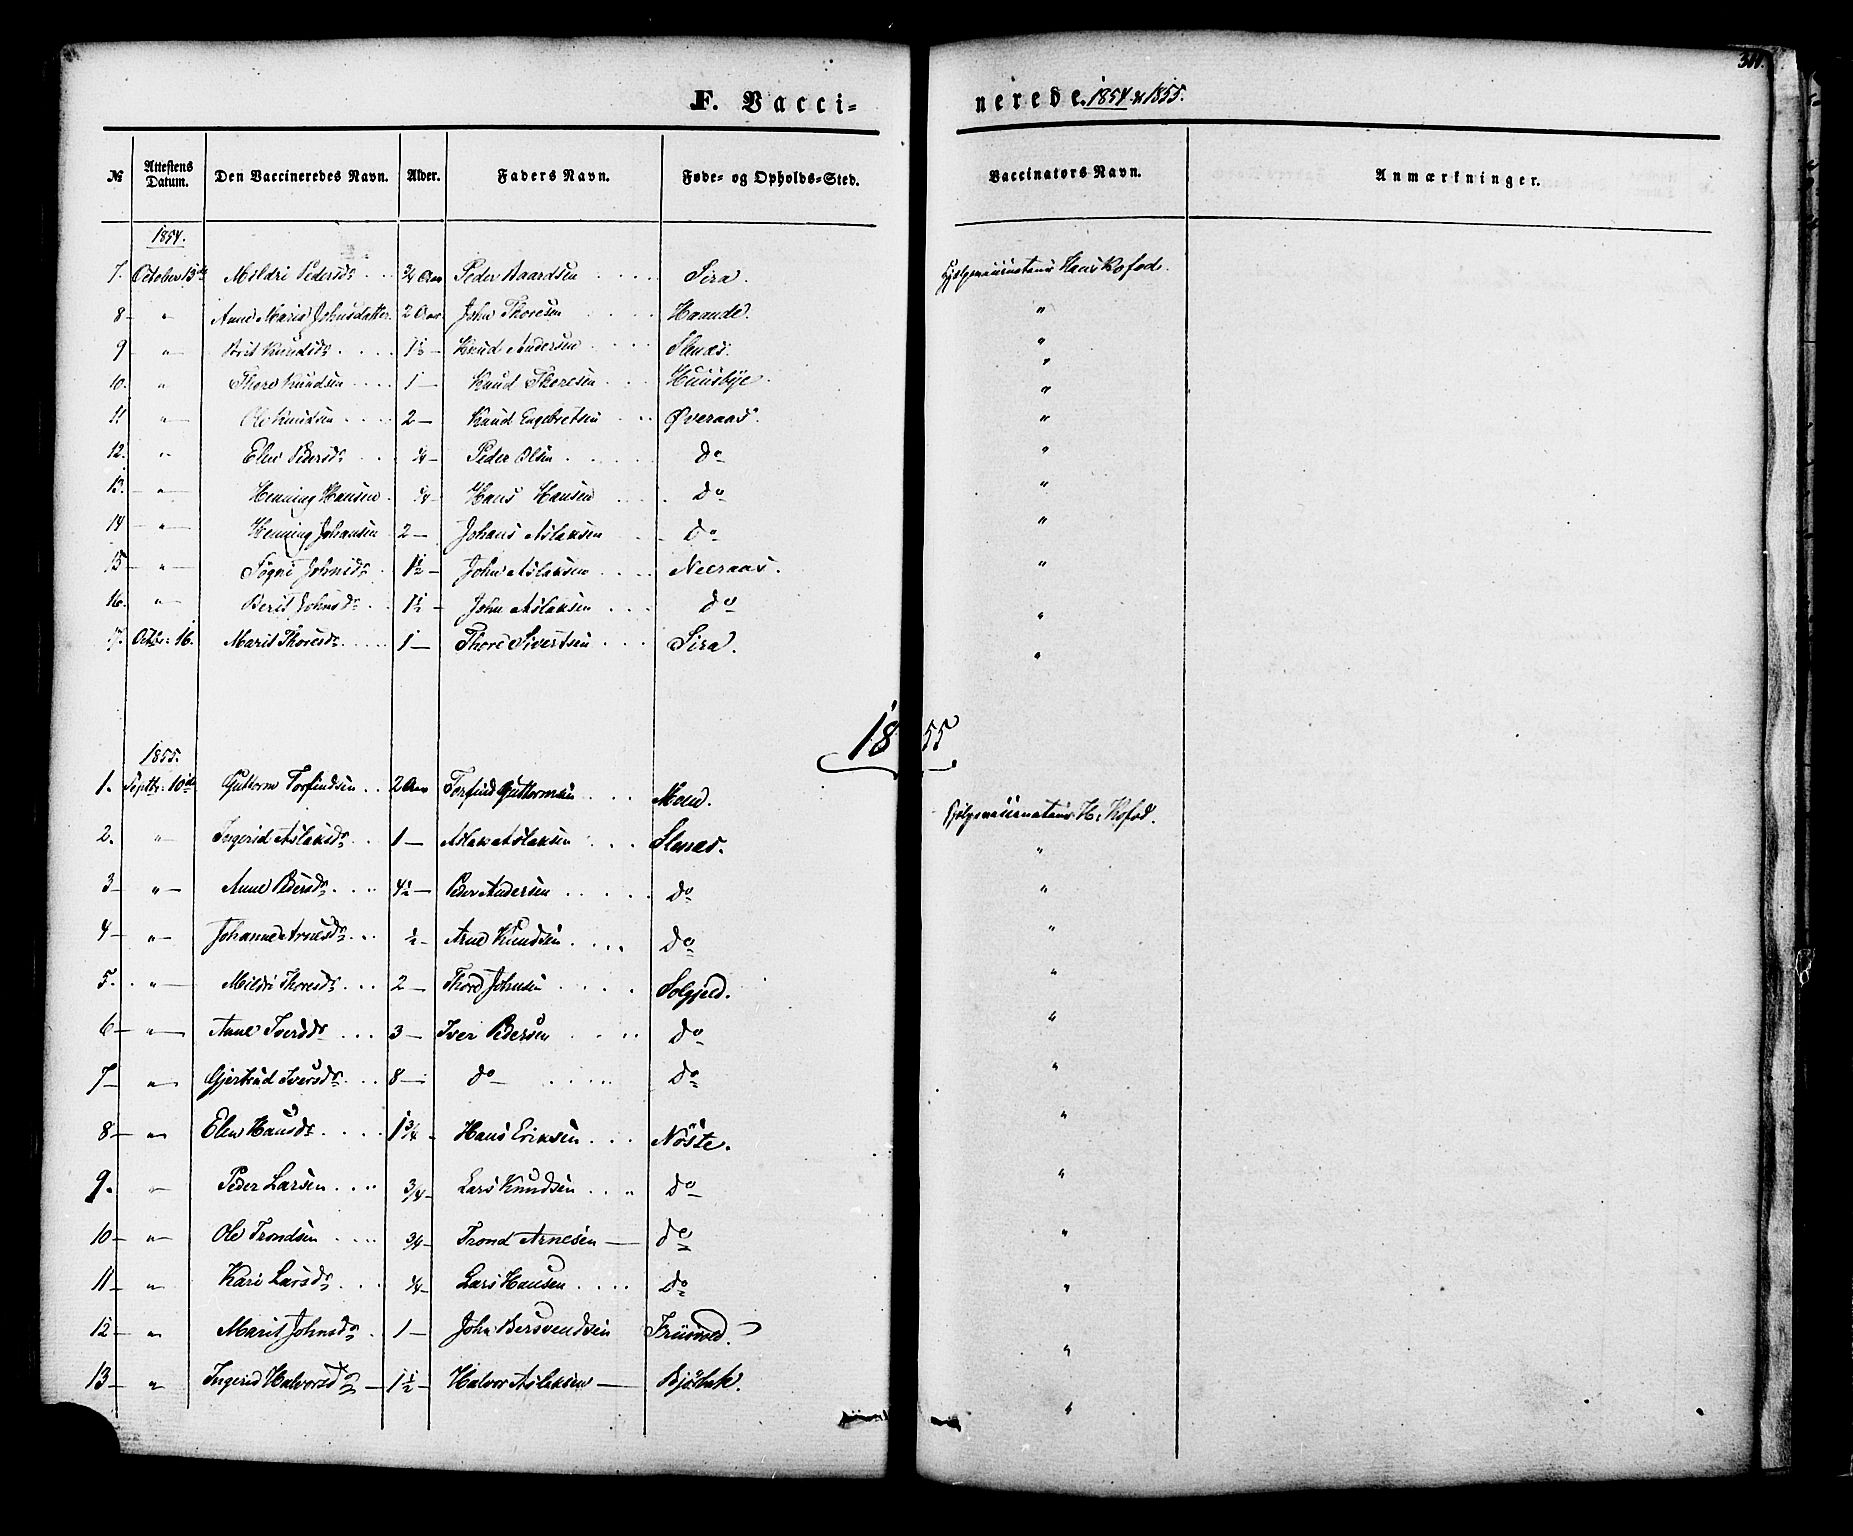 311.
F. Vacci=nerede. 1854 & 1855.
№ Attestens Datum. Den Vaccineredes Navn. Alder. Faders Navn. Føde- og Opholds-Sted. Vaccinators Navn. Anmærkninger.
1854.
7. October 13de Mildri Pedersdr 3/4 Aar Peder Baardsen Sira. Hjelpevaccinateur Hans Kofod.
8 — " Anne Maria Johnsdatter 2 Aar John Thoresen Haande. "
9 — " — Brit Knudsdr 1½ — Knud Andersen Slenæs. "
10. " Thore Knudsen 1 — Knud Thoresen Huusbye. "
11 — " — Ole Knudsen 2 — Knud Engebretsen Øveraas. "
12. " Elen Pedersdr ¼ — Peder Olsen do "
13. — " — Henning Hansen ¼ — Hans Hansen do "
14 — " — Henning Johansen 2 — Johans Aslaksen do "
15 — " — Søgni Johnsdr 1½ — John Aslaksen Neeraas. "
16. — " — Berit Johnsdr 1½ — John Aslaksen do "
17. Octbr: 16. Marit Thoresdr 1 — Thore Sivertsen Sira. "
1855
1855.
1. Septbr: 10de Guttorm Torfindsen 2 Aar Torfind Guttormsen Moen. Hjelpevaccinateur H. Kofod.
2. " Ingerid Aslaksdr 1 — Aslak Aslaksen Slenæs. "
3 — " — Anne Pedersdr 4½ — Peder Andersen do "
4 — " — Johanne Arnesdr ½ — Arne Knudsen do "
5. " — Mildri Thoresdr 2 — Thore Johnsen Solgjeld. "
6 — " — Anne Iversdr 3 — Iver Pedersen do "
7 — " — Gjertrud Iversdr 8 — do do "
8 — " — Elen Hansdr 1¾ Hans Eriksen Nöste. "
9. " Peder Larsen 3/4 — Lars Knudsen do "
10 — " — Ole Trondsen 3/4 — Trond Arnesen — do "
11 — " — Kari Larsdr ¼ — Lars Hansen do "
12 — " — Marit Johnsdr 1 — John Bersvendsen "
13 — " Ingerid Halvorsdr — 1½ — Halvor Aslaksen — Bjørbak. "